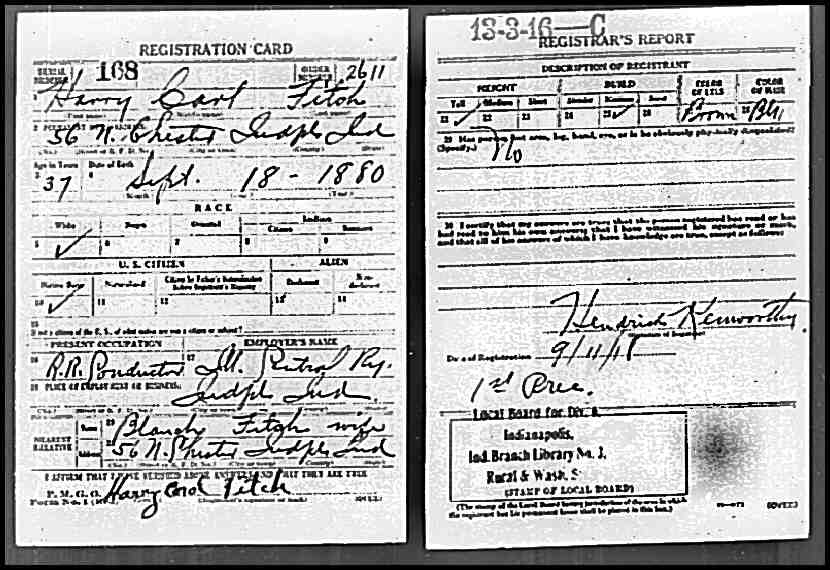 REGISTRATION CARD
SERIAL NUMBER 168 ORDER NUMBER 2611
1 Harry Carl Fitch
2 PERMANENT HOME ADDRESS
56 N. Chester Indpls Ind
Age in Years Date of Birth
3 37 4 Sept. 18 - 1880
RACE
White Negro Oriental Indian
Citizen
5 ✓ 6 7 8 9
U. S. CITIZEN ALIEN
Native Born Naturalized Citizen by Father's Naturalization Before Registrant's Majority Declarant Non-declarant
10 ✓ 11 12 13 14
15
If not a citizen of the U. S., of what nation are you a citizen or subject?
PRESENT OCCUPATION EMPLOYER'S NAME
16 R.R. Conductor 17 Ill. Central Ry.
18 PLACE OF EMPLOYMENT OR BUSINESS
Indpls Ind.
NEAREST RELATIVE
Name Blanch Fitch wife
Address 56 N. Chester Indpls Ind
I AFFIRM THAT I HAVE VERIFIED ABOVE ANSWERS AND THAT THEY ARE TRUE
P. M. G. O.
Form No. 1 Harry Carl Fitch (OVER)
13-3-16—C
REGISTRAR'S REPORT
DESCRIPTION OF REGISTRANT
HEIGHT BUILD COLOR OF EYES COLOR OF HAIR
Tall Medium Short Slender Medium Stout
21 22 23 24 25 ✓ 26 27 Brown 28 Blk
29 Has person lost arm, leg, hand, eye, or is he obviously physically disqualified?
(Specify.) No
30 I certify that my answers are true; that the person registered has read or has
had read to him his own answers; that I have witnessed his signature or mark,
and that all of his answers of which I have knowledge are true, except as follows:
Hendrick Kenworthy
(Signature of Registrar)
Date of Registration 9/11/18
1st Prec.
Local Board for Div. 8.
Indianapolis,
Ind. Branch Library No. 3,
Rural & Wash. S
(STAMP OF LOCAL BOARD)
(The stamp of the Local Board having jurisdiction of the area in which
the registrant has his permanent home shall be placed in this box.)
(OVER)